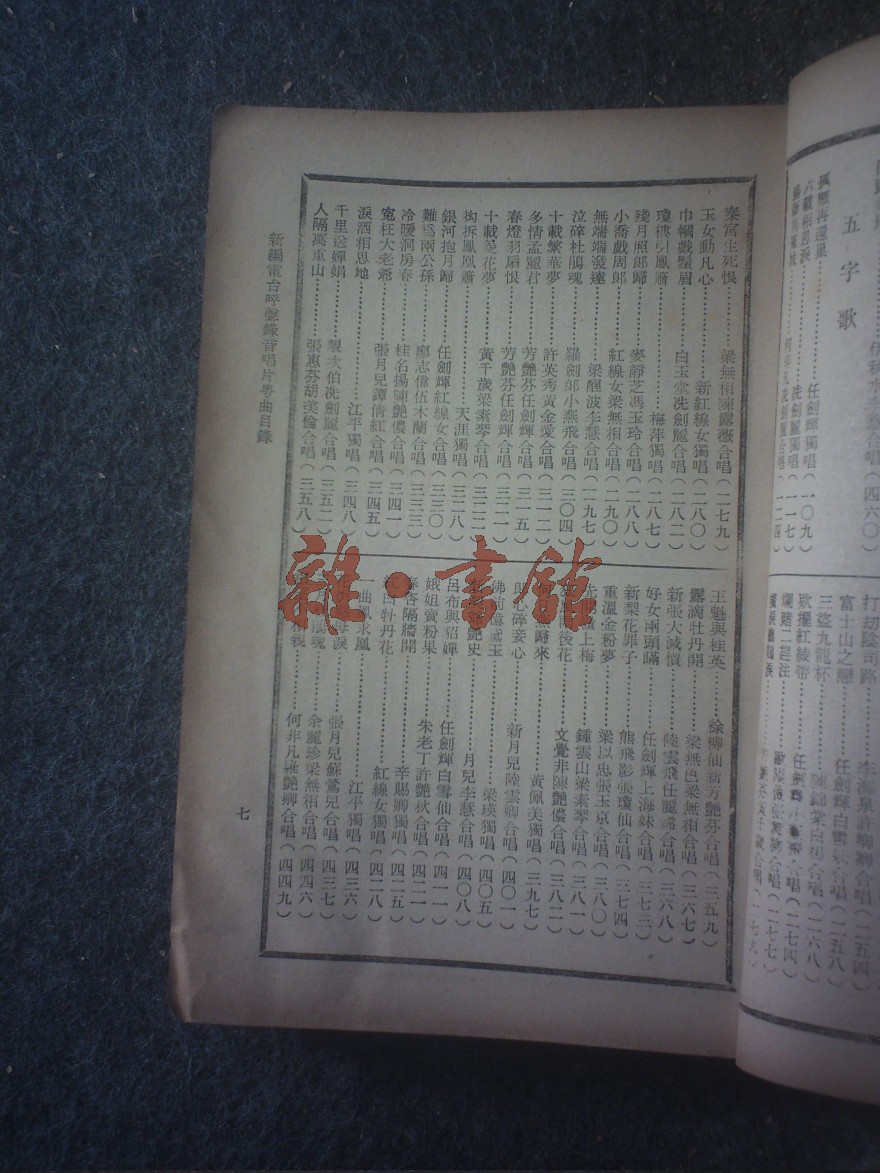 秦宮生死恨……梁無相陳露薇合唱(二七九)
玉女動凡心……新紅線女獨唱(二八〇)
巾幗戲鬚眉……白玉堂冼劍麗合唱(二八二)
瓊樓引鳳簫……梅萍獨唱(二八七)
殘月照郎歸……麥靜芝馮玉玲合唱(二八八)
小喬戲周郎……紅線女梁無相合唱(二九〇)
無端端發達……梁醒波李慧合唱(二九七)
泣碎杜鵑魂……羅劍郎小燕飛合唱(三〇四)
十載繁華夢……許英秀黃金愛合唱(三一二)
多情孟麗君……芳艷芬任劍輝合唱(三一五)
春燈羽扇恨……芳艷芬任劍輝合唱(三二一)
十載菱花夢……黃千歲梁素琴合唱(三二二)
拗折鳳凰簫……天涯獨唱(三二八)
銀河抱月歸……任劍輝紅線女合唱(三三〇)
難為兩公孫……廖志偉伍木蘭合唱(三三三)
冷暖洞房春……桂名揚陳艷儂合唱(三四一)
寃枉大老爺……張月兒譚倩紅合唱(三四五)
淚洒相思地……江平獨唱(三四八)
千里送嬋娟……靚次伯冼劍麗合唱(三五二)
人隔萬重山……張惠芬胡美倫合唱(三五八)
王魁與桂英……徐柳仙新芳艷芬合唱(三五九)
露滴牡丹開……梁無色梁無相合唱(三六七)
新張大減價……陸雲飛任麗霞合唱(三六八)
好女兩頭瞞……任劍輝上海妹合唱(三七三)
新梨花罪子……熊飛影張瓊仙合唱(三七四)
重溫金粉夢……梁以忠張玉京合唱(三八〇)
上梅……鍾雲山梁素琴合唱(三八一)
後花……文覺非陳艷儂合唱(三八二)
歸來……黃佩美獨唱(三九七)
郎心碎妾心……新月兒陸雲卿合唱(四〇一)
佛前憶處玉……梁瑛獨唱(四〇五)
艷史……月兒李慧合唱(四〇八)
呂布與貂蟬……任劍輝白雪仙合唱(四一一)
娥姐賣粉果……朱老丁許艷秋合唱(四二一)
春杏隔牆開……辛賜卿獨唱(四二五)
紅白牡丹花……紅線女獨唱(四二八)
一曲鳳求凰……江平獨唱(四三六)
淚……張月兒蘇鶯兒合唱(四三七)
魂……余麗珍梁無相合唱(四四六)
義……何非凡羅艷卿合唱(四四九)
新編電台呼聲錄音唱片粵曲目錄
七
五字歌
孤雁再還巢……任劍輝獨唱(一〇九)
六載相思淚……冼劍麗獨唱(一一七)
打刼陰司路……李海泉許卿卿合唱(二五四)
富士山之戀……任劍輝白雪仙合唱(二五八)
三盜九龍杯……陳錦棠合唱(二六八)
欵擺紅綾帶……任劍合唱(二七四)
爛賭二起注……合唱(二七七)
雜·書館